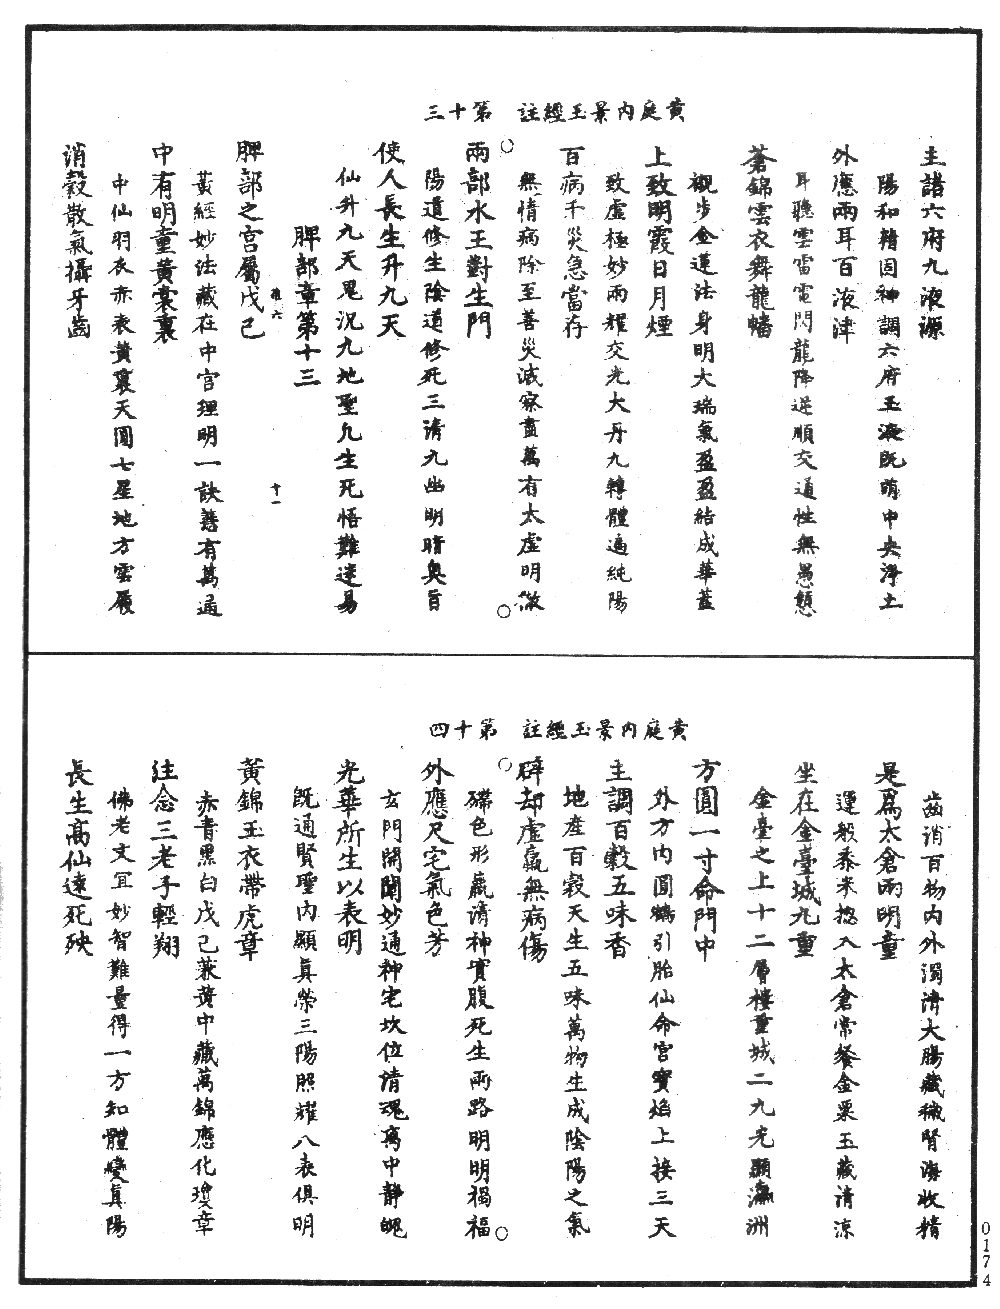 黃庭內景玉經註　第十三
主諸六府九液源
陽和精固神調六府玉液既萌中央淨土
外應兩耳百液津
耳聽雲雷電閃龍降逆順交通性無愚戇
蒼錦雲衣舞龍幡
襯步金蓮法身明大瑞氣盈盈結成華蓋
上致明霞日月煙
致虛極妙兩耀交光大丹九轉體遍純陽
百病千災急當存
無情病除至善災滅察盡萬有太虛明徹
兩部水王對生門
陽道修生陰道修死三清九幽明晴奧旨
使人長生升九天
仙升九天鬼沉九地聖凡生死悟難迷易
脾部章第十三
脾部之宮屬戊己
十一
黃經妙法藏在中宮理明一訣善有萬通
中有明童黃裳裏
中仙羽衣赤表黃裏天圓七星地方雲履
消穀散氣攝牙齒
黃庭內景玉經註　第十四
齒消百物內外濁清大腸藏穢腎海收精
是爲太倉兩明童
運般黍米揔入太倉常餐金粟玉藏清涼
坐在金臺城九重
金臺之上十二層樓重城二九光顯瀛洲
方圓一寸命門中
外方內圓鶴引胎仙命宮寶焰上接三天
主調百穀五味香
地產百穀天生五味萬物生成陰陽之氣
辟却虛羸無病傷
礙色形羸清神實腹死生兩路明明禍福
外應尺宅氣色芳
玄門開闡妙通神宅坎位清魂离中靜魄
光華所生以表明
既通賢聖內顯真榮三陽照耀八表俱明
黃錦玉衣帶虎章
赤青黑白戊己兼黃中藏萬錦應化瓊章
注念三老子輕翔
佛老文宣妙智難量得一方知體變真陽
長生高仙遠死殃
0174